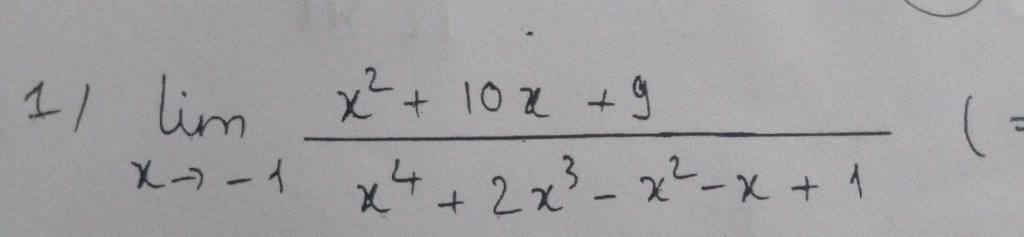 1/ lim x→-1 (x² + 10x + 9)/(x⁴ + 2x³ - x² - x + 1) (=